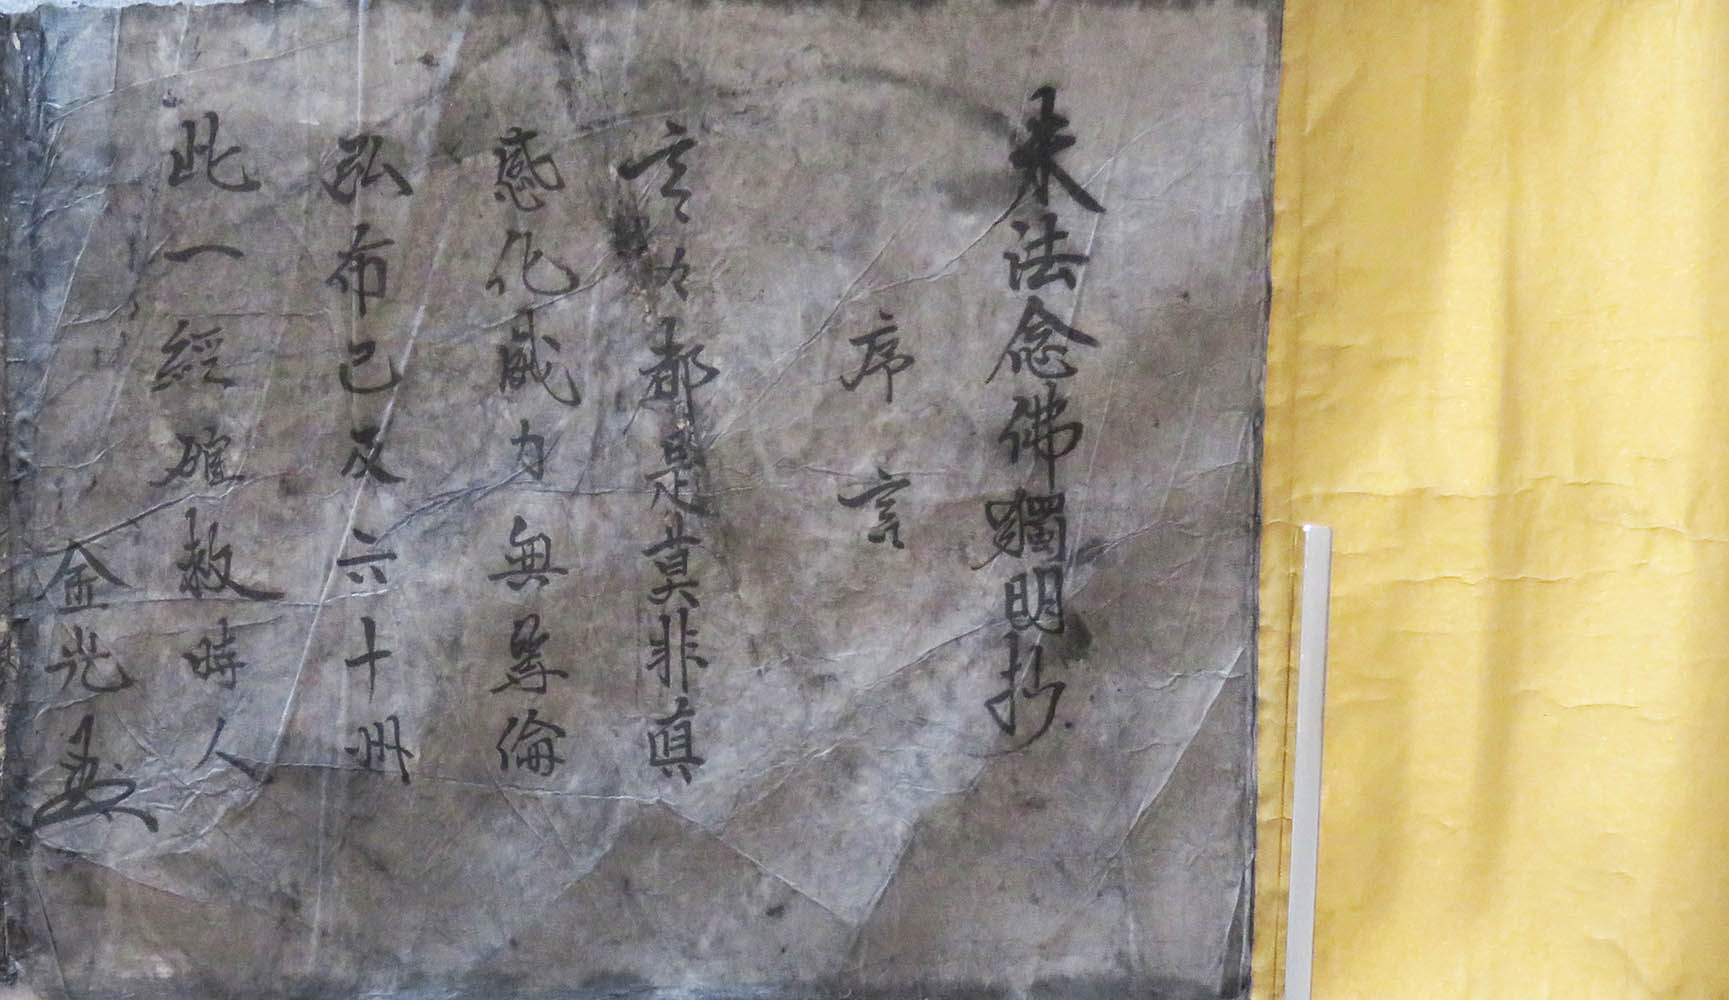 末法念佛獨明抄
序言
言々都是莫非真
感化威力無等倫
弘布已及六十州
此一經確救時人
金光